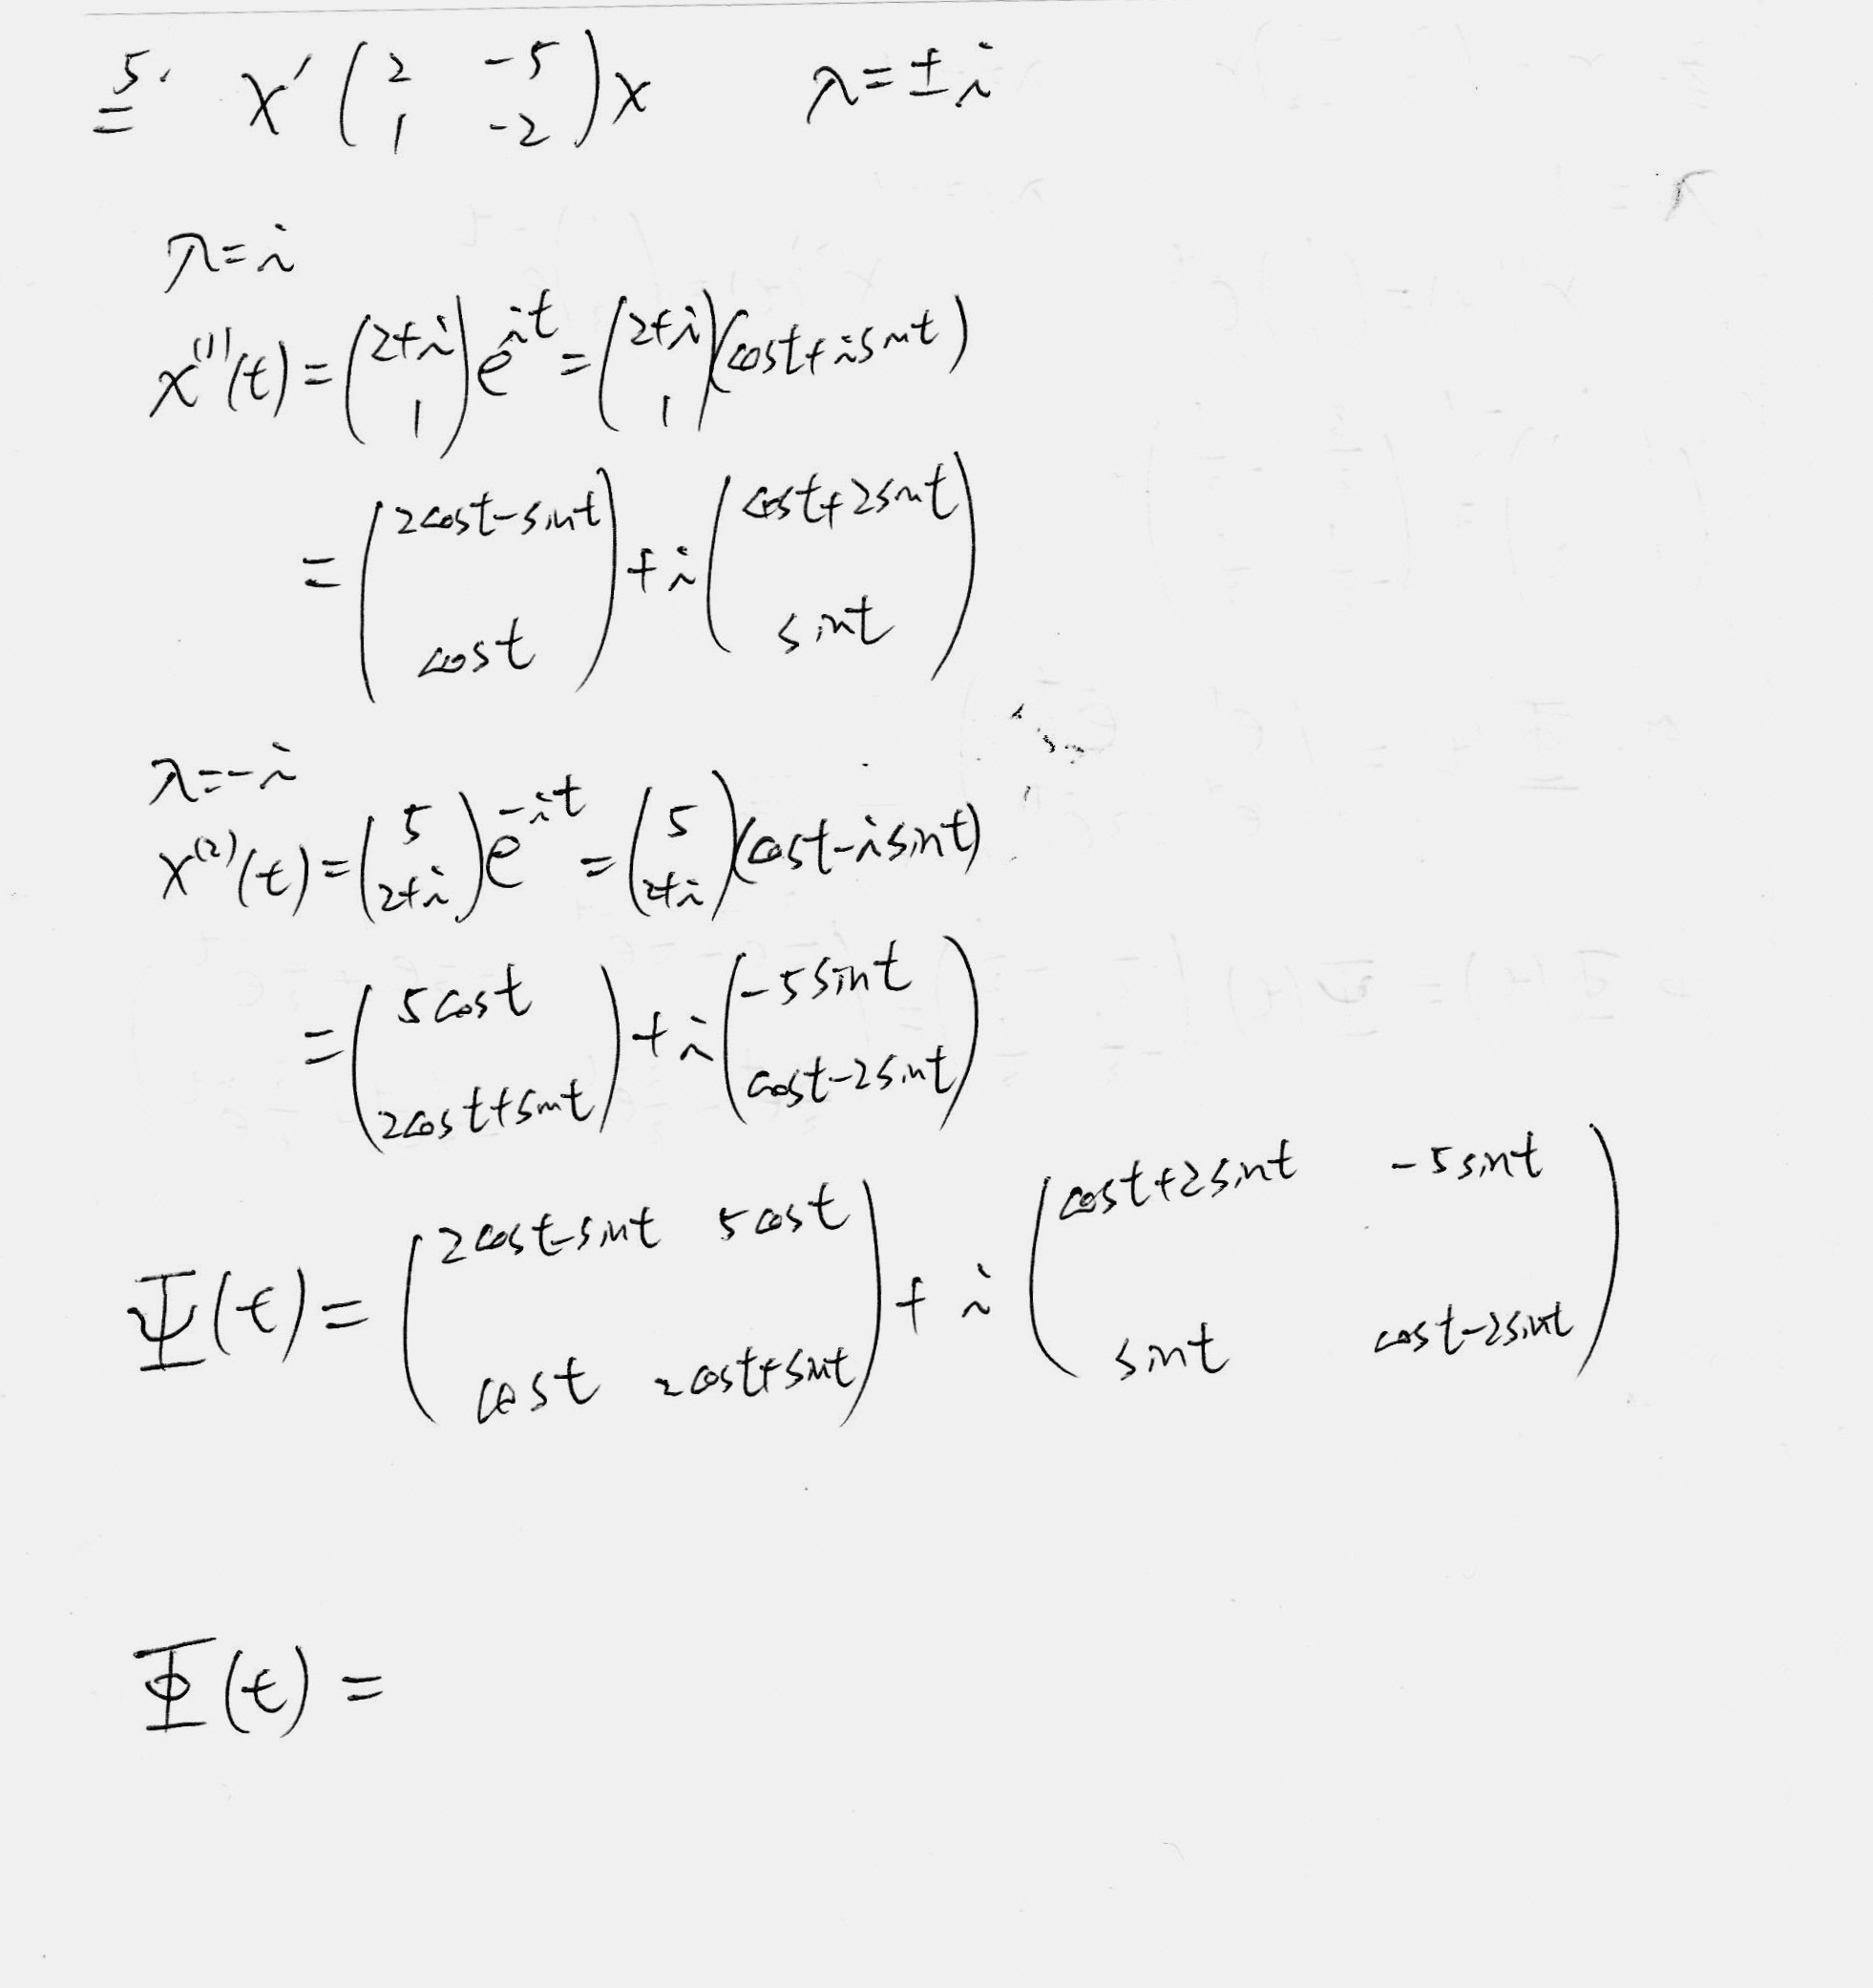 5. x' ( 2 -5 ; 1 -2 ) x λ = ± i
λ = i
x⁽¹⁾(t) = ( 2+i ; 1 ) e^{it} = ( 2+i ; 1 ) (cost + i sint)
= ( 2cost - sint ; cost ) + i ( cost + 2sint ; sint )
λ = -i
x⁽²⁾(t) = ( 5 ; 2+i ) e^{-it} = ( 5 ; 2+i ) (cost - i sint)
= ( 5cost ; 2cost + sint ) + i ( -5sint ; cost - 2sint )
Ψ(t) = ( 2cost - sint 5cost ; cost 2cost + sint ) + i ( cost + 2sint -5sint ; sint cost - 2sint )
Φ(t) =